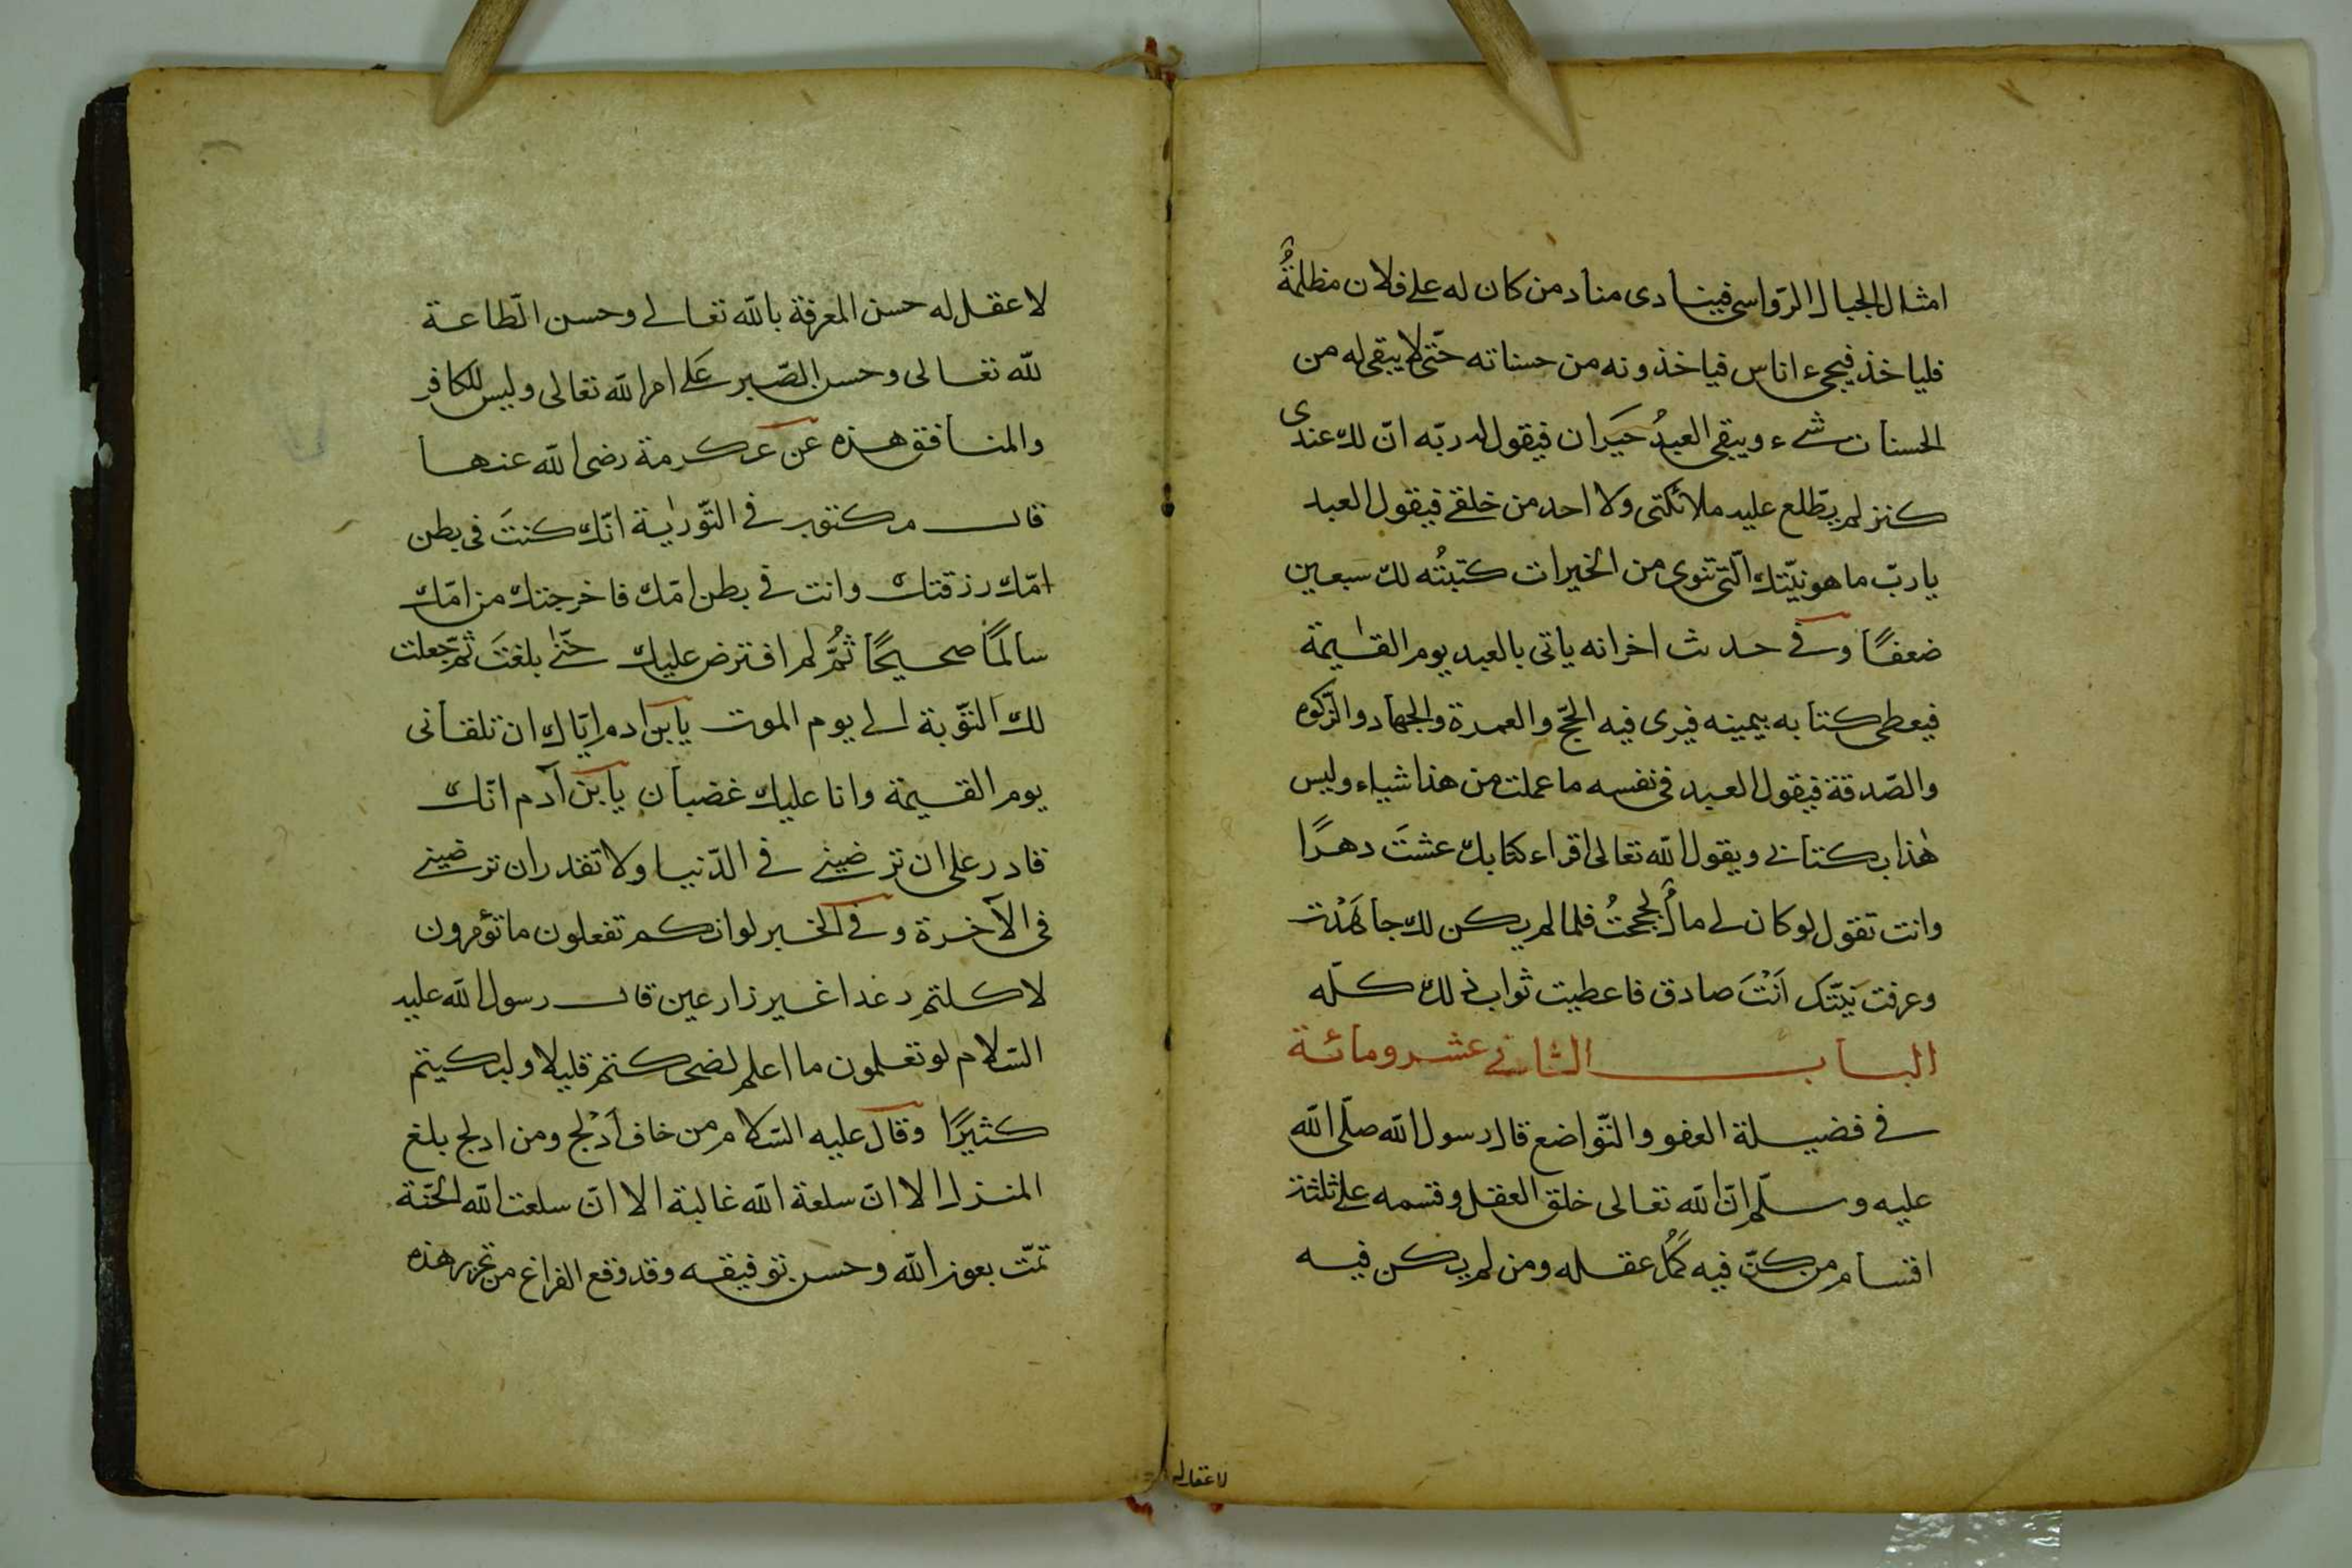 امثال الجبال الرّواسى فينادى مناد من كان له على فلان مظلمةٌ
فلياخذ فيجىء اناس فياخذونه من حسناته حتّى لا يبقى له من
الحسنات شىء ويبقى العبدُ حيَران فيقول له ربّه انّ لك عندى
كنز لم يطّلع عليه ملائكتى ولا احد من خلقى فيقول العبد
يا ربّ ما هو نيّتك الّتى تنوى من الخيرات كتبتُه لك سبعين
ضعفًا وفى حدث اخر انه ياتى بالعبد يوم القيمة
فيعطى كتابه بيمينه فيرى فيه الحجّ والعمرة والجهاد والزّكوه
والصّدقة فيقول العبد فى نفسه ما عملت من هذا شياء وليس
هٰذا بكتابى ويقول الله تعالى اقراء كتابك عشتَ دهرًا
وانت تقول لو كان لى مالٌ لحججتُ فلما لم يكن لك جاهَدْت
وعرفت نيّتك اَنْتَ صادق فاعطيت ثواب ذلك كلّه
البـاب الثانى عشر ومائة
فى فضيلة العفو والتّواضع قال رسول الله صلّى الله
عليه وسلّم انّ الله تعالى خلق العقل وقسمه على ثلثة
اقسام من كنّ فيه كَمُلَ عقله ومن لم يكن فيه
لا عقل له
لا عقل له حسن المعرفة بالله تعالى وحسن الطّاعة
لله تعالى وحسن الصّبر عَلى امر الله تعالى وليس للكافر
والمنافق هذه عَن عكرمة رضى الله عنها
قال مكتوب فى التّورٰية انّك كنتَ فى بطن
امّك رزقتك وانت فى بطن امّك فاخرجتك من امّك
سالمًا صحيحًا ثُمَّ لم افترض عليك حَتّٰى بلغتَ ثمّ جعلت
لك التّوبة الى يوم الموت يا بن ادم ايّاك ان تلقانى
يوم القيمة وانا عليك غضبان يا بن آدم انّك
قادر على ان ترضينى فى الدّنيا ولا تقدر ان ترضينى
فى الآخرة وفى الخبر لو انكم تفعلون ما تؤمرون
لاكلتم رغدا غير زارعين قال رسول الله عليه
السّلام لو تعلمون ما اعلم لضحكتم قليلا ولبكيتم
كثيرًا وقال عليه السّلام من خاف اَدْلج ومن ادلج بلغ
المنزل الا انّ سلعة الله غالية الا انّ سلعت الله الجنّة
تمّت بعون الله وحسن توفيقه وقد وقع الفراغ من تحرير هذه